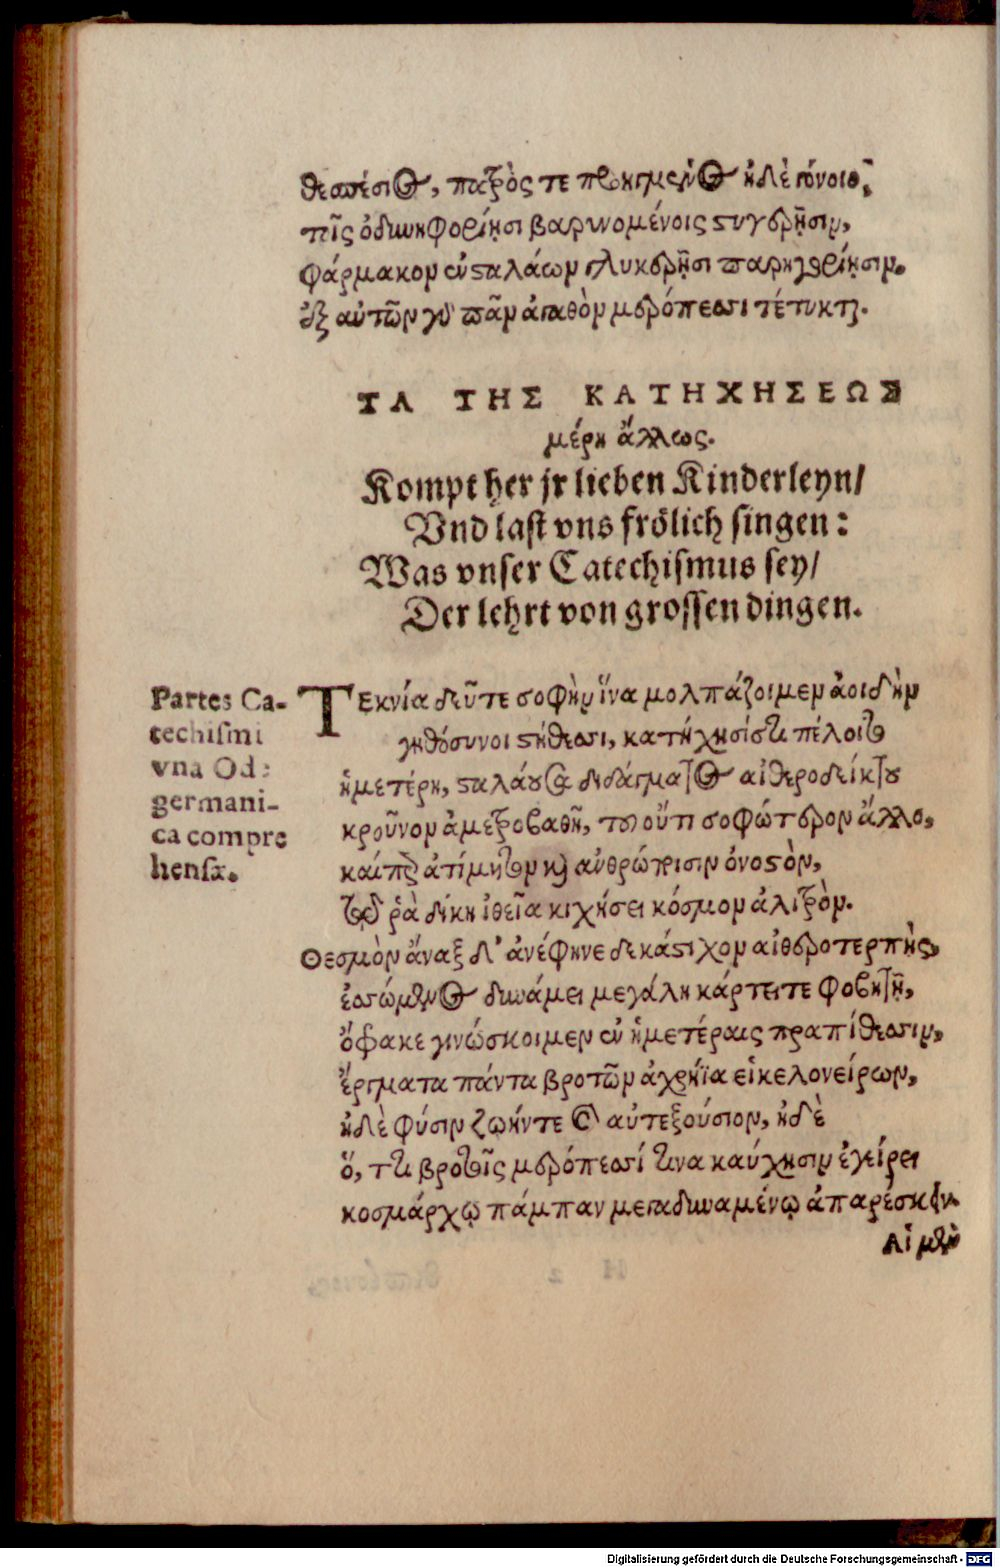 θεσπέσιος, πατρός τε προκειμένος ἠδὲ γόνοιο,
τοῖς ὀδυνηφορίῃσι βαρυνομένοις στυγερῇσιν,
φάρμακον ἐνσταλάων γλυκερῇσι παρηγορίῃσιν.
ἐξ αὐτῶν γὰρ πᾶν ἀγαθὸν μερόπεσσι τέτυκται.
ΤΑ ΤΗΣ ΚΑΤΗΧΗΣΕΩΣ
μέρη ἄλλως.
Kompt her jr lieben Kinderleyn/
Vnd last vns frölich singen:
Was vnser Catechismus sey/
Der lehrt von grossen dingen.
Partes Ca-
techismi
vna Ode
germani-
ca compre
hensæ.
ΤΕκνία δεῦτε σοφὴν ἵνα μολπάζοιμεν ἀοιδὴν
γηθόσυνοι στήθεσσι, κατήχησίς τι πέλοιτο
ἡμετέρη, σταλάουσα διδάγματος αἰθεροδείκτου
κροῦνον ἀμετροβαθῆ, τοῦ οὔτι σοφώτερον ἄλλο,
καίπερ ἀτίμητον καὶ ἀνθρώποισιν ὀνοστὸν,
τόδ ῥὰ δίκη ἰθεῖα κιχήσει κόσμον ἀλιτρὸν.
Θεσμὸν ἄναξ δ' ἀνέφηνε δεκάστιχον αἰθεροτερπὴς,
ἑσσώμενος δυνάμει μεγάλη κάρτει τε φοβητῇ,
ὄφρακε γινώσκοιμεν ἐν ἡμετέραις πραπίδεσσιν,
ἔργματα πάντα βροτῶν ἀχρήϊα εἰκελονείρων,
ἠδὲ φύσιν ζωήντε καὶ αὐτεξούσιον, ἠδὲ
ὅ, τι βροτοῖς μερόπεσσί τινα καύχησιν ἐγείρει
κοσμάρχῳ πάμπαν μεγαδυναμένῳ ἀπαρέσκειν.
Αἱ μὲν
Digitalisierung gefördert durch die Deutsche Forschungsgemeinschaft - DFG